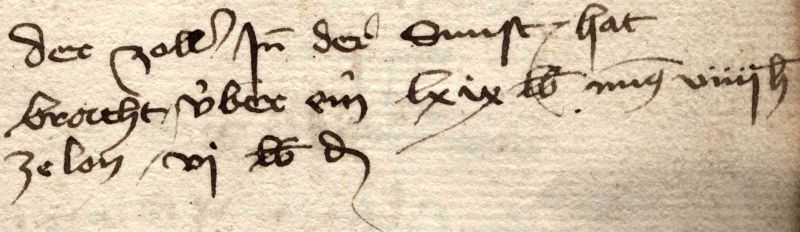 der zoll' Jn der Sunst hat
brocht v̊ber ein lxix lb min9 viiij h
ze lon vj lb d